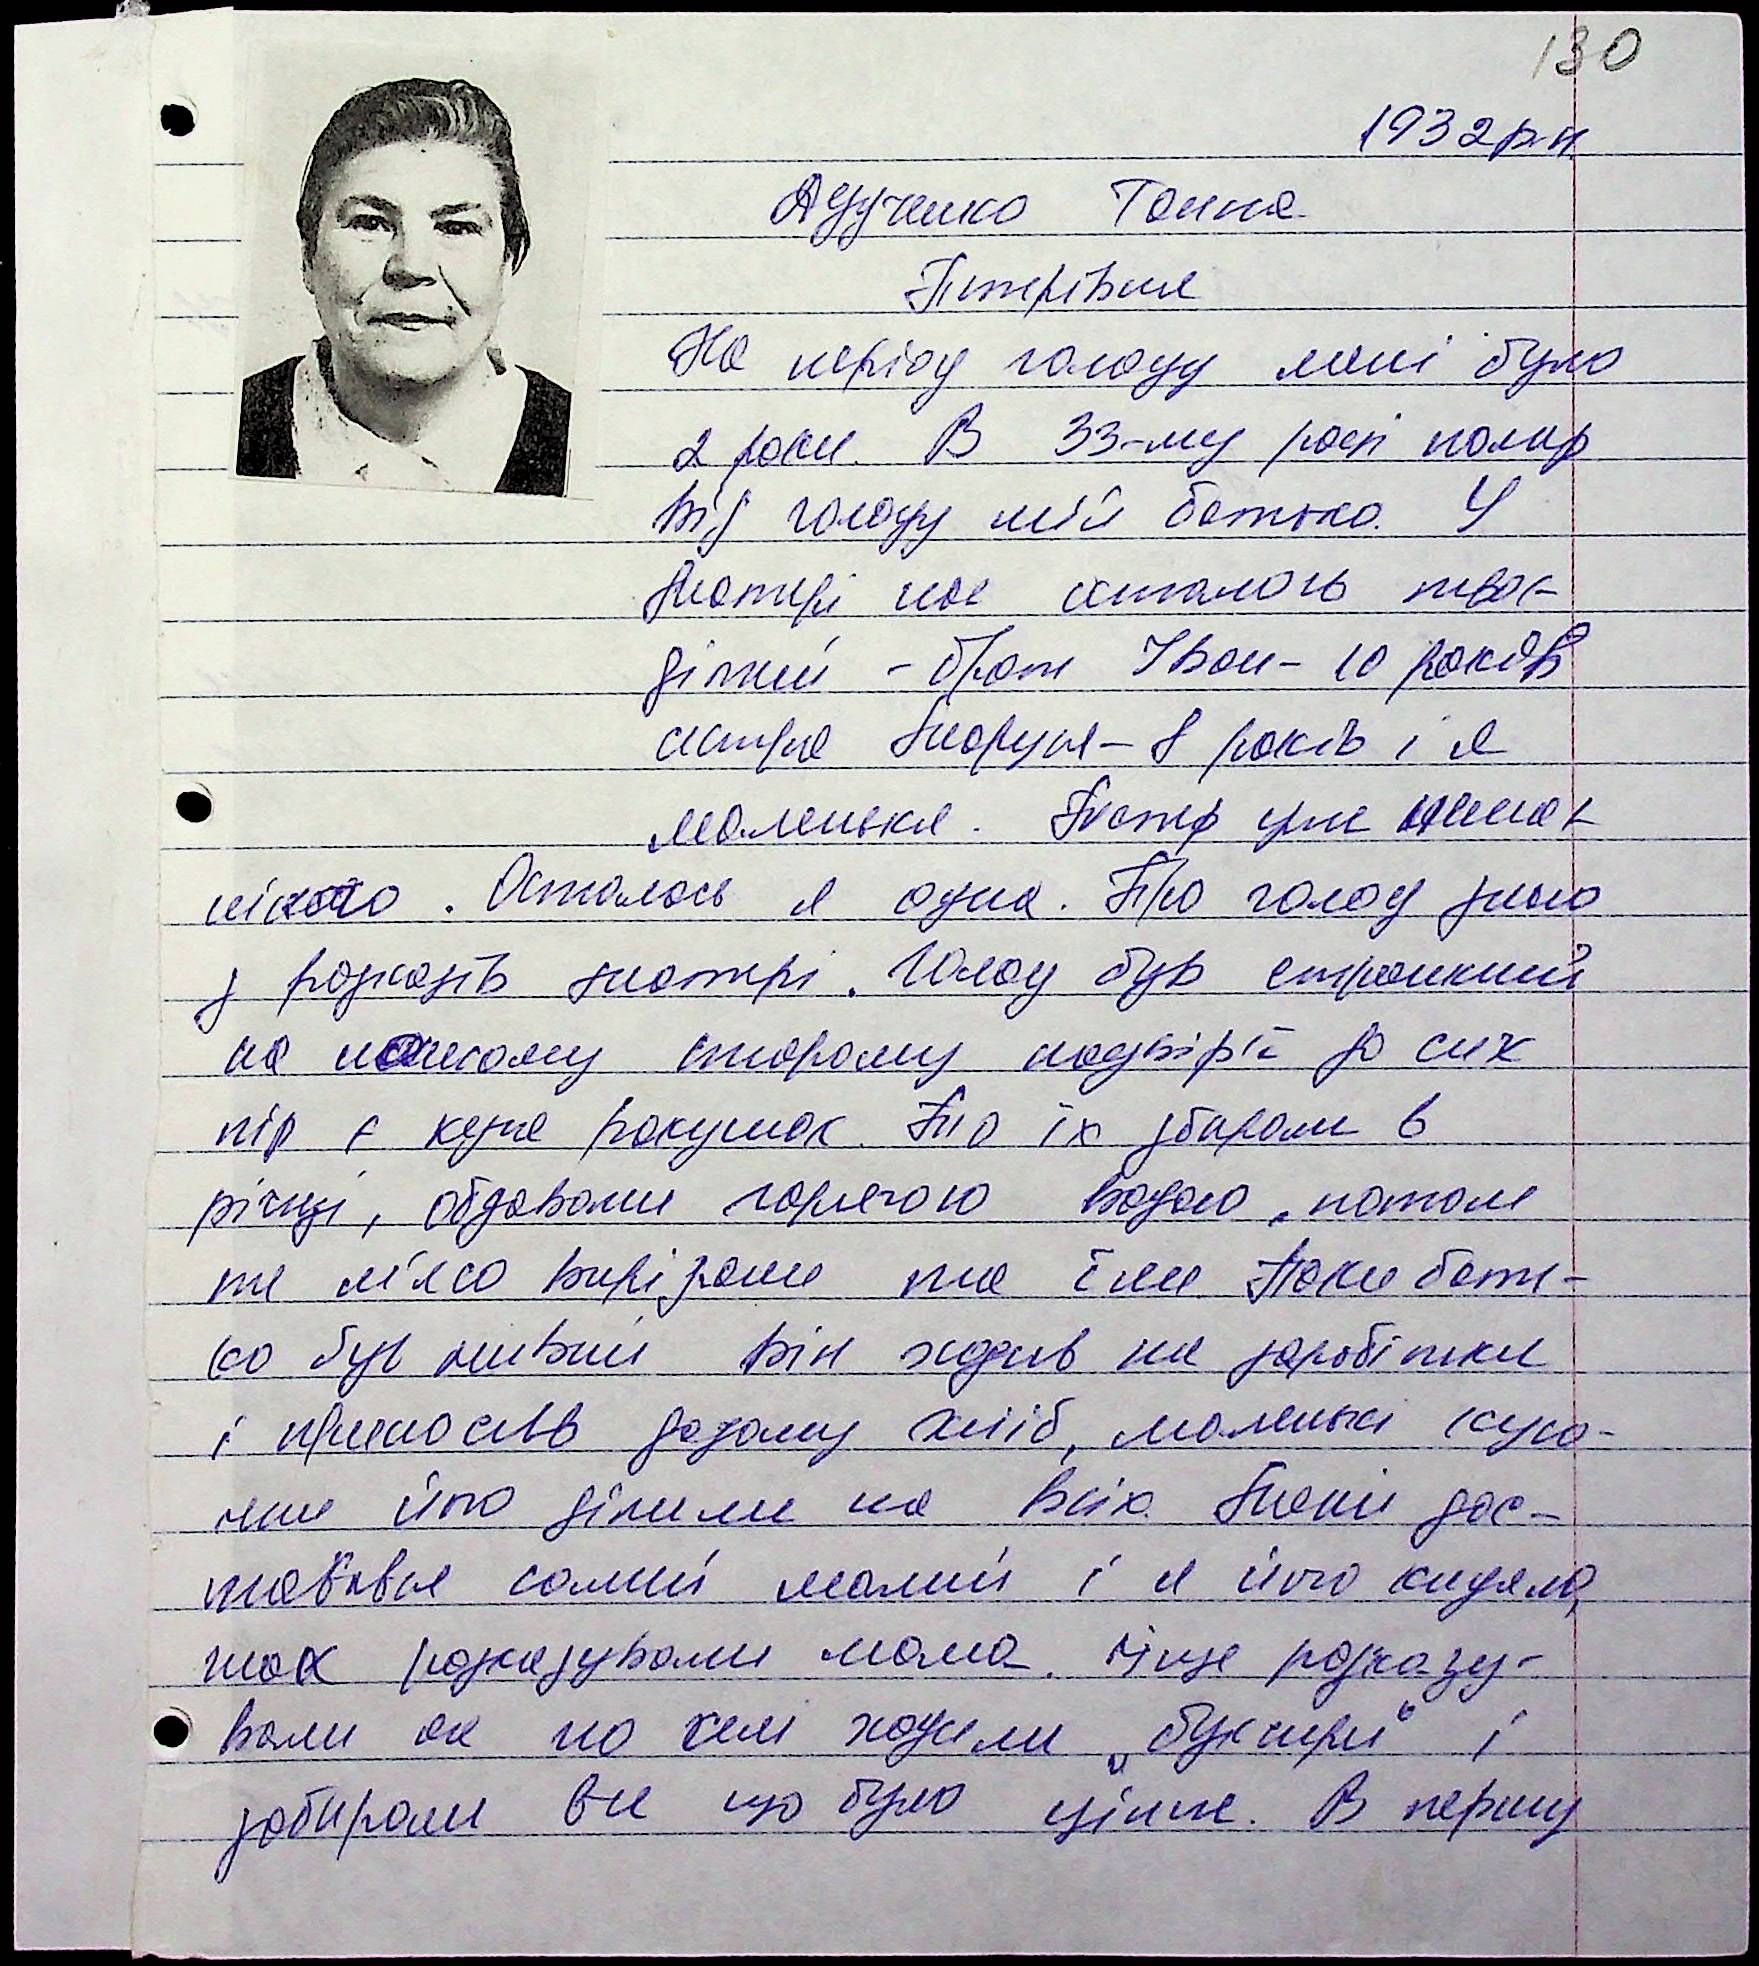 130
1932 р.н.
Ганна
Петрівна
На період голоду мені було
2 роки. В 33-му році помер
від голоду мій батько. У
матері нас осталось троє
дітей - брат Іван - 10 років
сестра Маруся - 8 років і я
маленька. Тепер уже немає
нікого. Осталась я одна. Про голод знаю
з розказів матері. Голод був страшний
на нашому старому подвірї до сих
пір є купа ракушок. То їх збирали в
річці, обдавали горячою водою, потом
те мʼясо вирізали та їли. Поки бать-
ко був живий він ходив на заробітки
і приносив додому хліб, маленькі кусо-
чки його ділили на всіх. Мені дос-
тавався самий малий і я його кидала,
так розказували мама. Іще розказу-
вали як по селі ходили „буксири" і
забирали все що було цінне. В першу